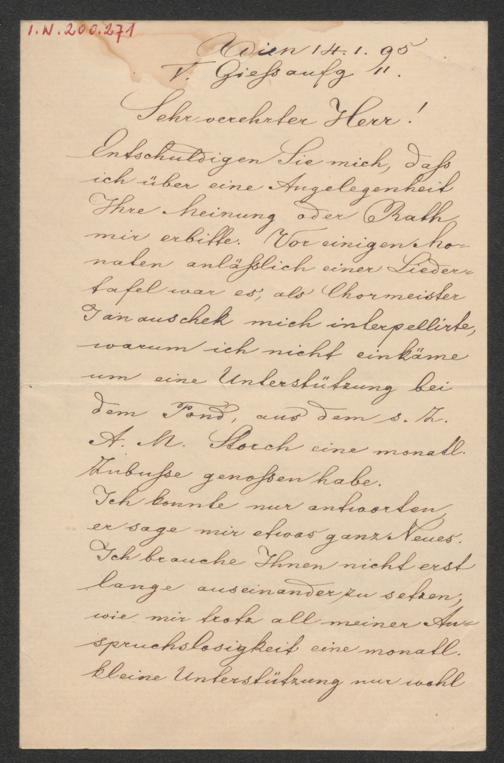 I.N. 200.271
Wien 14.1.95
V. Giessaufg 11.
Sehr verehrter Herr!
Entschuldigen Sie mich, daß
ich über eine Angelegenheit
Ihre Meinung oder Rath
mir erbitte. Vor einigen Mo=
naten anläßlich einer Lieder=
tafel war es, als Chormeister
Janauschek mich interpellirte,
warum ich nicht einkäme
um eine Unterstützung bei
dem Fond, aus dem s. Z.
A. M. Storch eine monatl.
Zubuße genoßen habe.
Ich konnte nur antworten,
er sage mir etwas ganz Neues.
Ich brauche Ihnen nicht erst
lange auseinander zu setzen,
wie mir trotz all meiner An=
spruchslosigkeit eine monatl.
kleine Unterstützung nur wohl